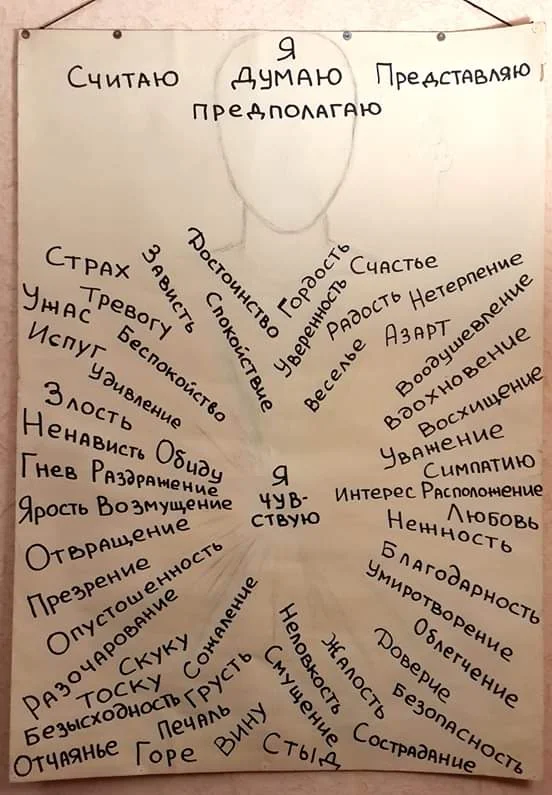 Я
Считаю думаю Представляю
предполагаю
Страх
Ужас
Тревогу
Испуг
Беспокойство
Удивление
Зависть
Достоинство
Спокойствие
Гордость
Уверенность
Счастье
Радость
Веселье
Нетерпение
Азарт
Воодушевление
Вдохновение
Восхищение
Уважение
Симпатию
Интерес Расположение
Любовь
Нежность
Злость
Ненависть Обиду
Гнев Раздражение
Ярость Возмущение
Я
чув-
ствую
Отвращение
Презрение
Опустошенность
Разочарование
Скуку
Тоску
Безысходность
Отчаянье
Сожаление
Грусть
Печаль
Горе
Вину
Стыд
Неловкость
Смущение
Жалость
Сострадание
Благодарность
Умиротворение
Облегчение
Доверие
Безопасность